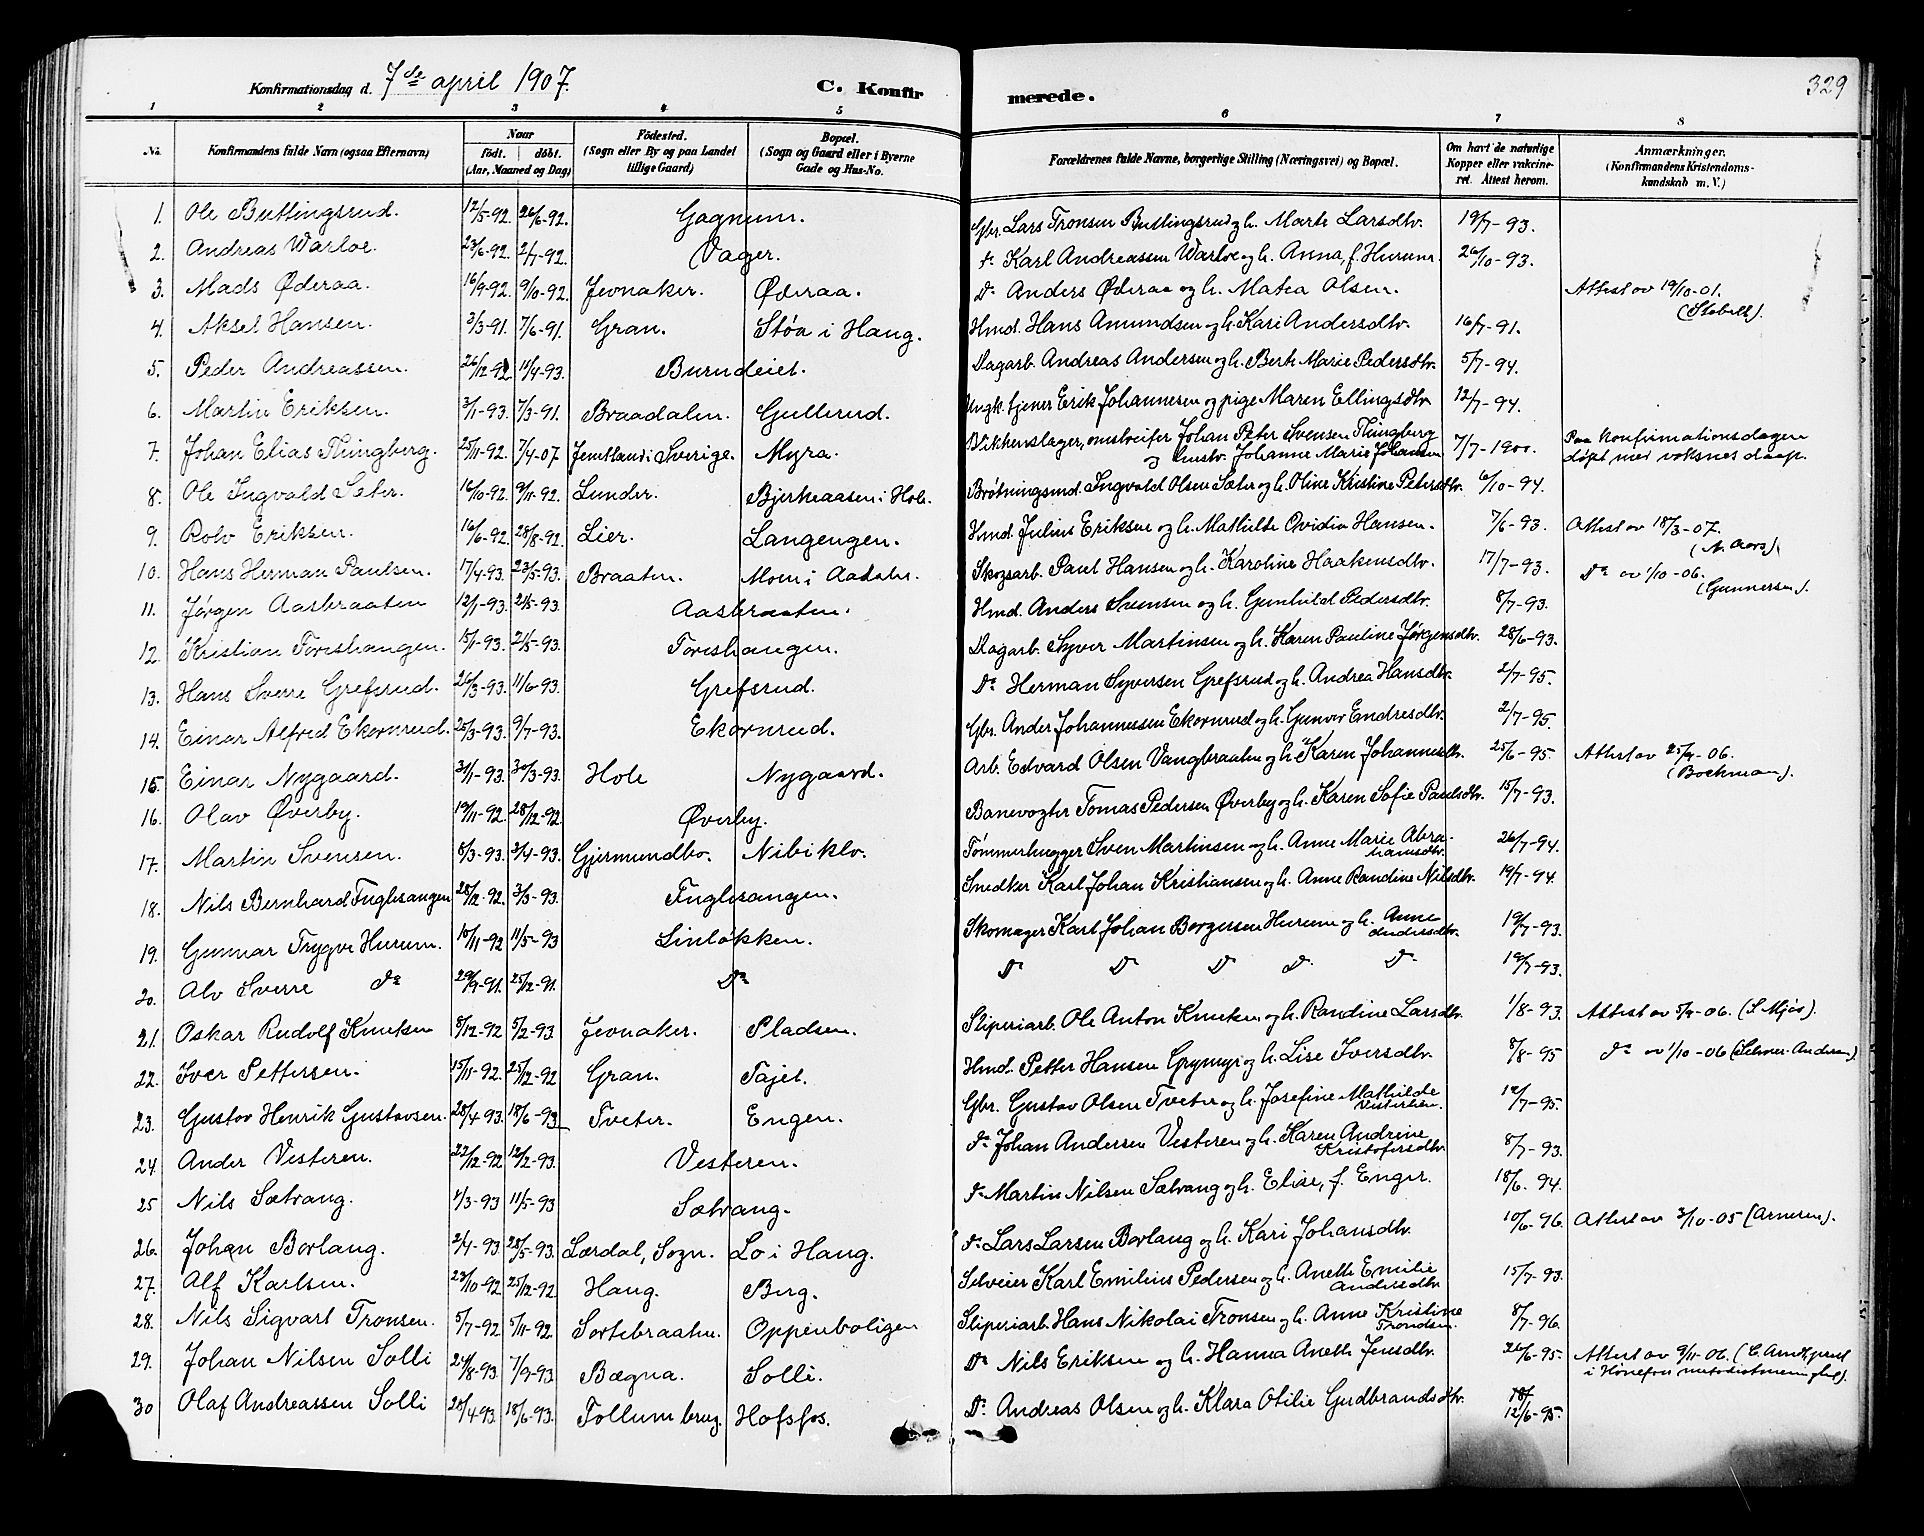 Konfirmationsdag d. 7de april 1907. C. Konfirmerede. 329
1 2 3 4 5 6 7 8
No. Konfirmandens fulde Navn (ogsaa Efternavn) Naar født. døbt. (Aar, Maaned og Dag) Fødested. (Sogn eller By og paa Landet tillige Gaard) Bopæl. (Sogn og Gaard eller i Byerne Gade og Hus-No. Forældrenes fulde Navne, borgerlige Stilling (Næringsvei) og Bopæl. Om havt de naturlige Kopper eller vakcineret. Attest herom. Anmærkninger. (Konfirmandens Kristendomskundskab m. V.)
1. Ole Buttingsrud. 12/5-92. 26/6-92. Gagnum. Gbr. Lars Tronsen Buttingsrud og h. Marte Larsdtr. 19/7-93.
2. Andreas Warloe. 23/6-92. 2/7-92. Vager. do Karl Andreassen Warloe og h. Anna, f. Hurum. 26/10-93.
3. Mads Øderaa. 16/9-92. 9/10-92. Jevnaker. Øderaa. Do Anders Øderaa og h. Matea Olsen. Attest av 19/10-01. (Stabell).
4. Aksel Hansen. 3/3-91. 7/6-91. Gran. Støa i Haug. Hmd. Hans Amundsen og h. Kari Andersdtr. 16/7-91.
5. Peder Andreassen. 26/12-92. 11/4-93. Burudeiet. Dagarb. Andreas Andersen og h. Berte Marie Pedersdtr. 5/7-94.
6. Martin Eriksen. 3/1-93. 7/3-91. Braadalen. Gullerud. Ungk. tjener Erik Johannesen og pige Maren Ellingsdtr. 12/7-94.
7. Johan Elias Thingberg. 25/11-92. 7/4-07. Jemtland i Sverige. Myra. Blikkenslager, omstreifer Johan Peter Svensen Thingberg og hustr. Johanne Marie Johansen 7/7-1900. Paa konfirmationsdagen døpt med voksnes daap.
8. Ole Ingvald Sæter. 16/10-92. 9/11-92. Lunder. Bjerkeaasen i Hole. Brøtningsmd. Ingvald Olsen Sæter og h. Oline Kristine Petersdtr. 6/10-94.
9. Rolv Eriksen. 16/6-92. 28/8-92. Lier. Langengen. Hmd. Julius Eriksen og h. Mathilde Ovidia Hansen. 7/6-93. Attest av 18/3-07. (N. Aars)
10. Hans Herman Paulsen. 17/4-93. 23/5-93. Braaten. Moen i Aadalen. Skogsarb. Paul Hansen og h. Karoline Haakensdtr. 17/7-93. Do av 1/10-06. (Gunnersen).
11. Jørgen Aasbraaten 12/1-93. 21/5-93. Aasbraaten. Hmd. Anders Svensen og h. Gunhild Pedersdtr. 8/7-93.
12. Kristian Toreshaugen. 15/1-93. 21/5-93. Toreshaugen. Dagarb. Syver Martinsen og h. Karen Pauline Jørgensdtr. 28/6-93.
13. Hans Sverre Grefsrud. 26/3-93. 11/6-93. Grefsrud. Do Herman Syversen Grefsrud og h. Andrea Hansdtr. 2/7-95.
14. Einar Alfred Ekornrud. 25/3-93. 9/7-93. Ekornrud. Gbr. Ander Johannessen Ekornrud og h. Gunvor Endresdtr. 2/7-95.
15. Einar Nygaard. 31/1-93. 30/3-93. Hole Nygaard. Arb. Edvard Olsen Vangbraaten og h. Karen Johannesdtr. 25/6-95. Attest av 25/9-06. (Bockman).
16. Olav Øverby. 19/11-92. 28/12-92. Øverby. Banevogter Tomas Pedersen Øverby og h. Karen Sofie Paulsdtr. 15/7-93.
17. Martin Svensen. 8/3-93. 3/4-93. Gjermundbo. Nibiklv. Tømmerhugger Sven Martinsen og h. Anne Marie Abrahamsdtr. 26/7-94.
18. Nils Bernhard Fuglesangen 28/12-92. 3/3-93. Fuglesangen. Snedker Karl Johan Kristiansen og h. Anne Randine Nilsdtr. 19/7-94.
19. Gunnar Trygve Hurum. 10/11-92 11/5-93 Linløkken. Skomager Karl Johan Borgersen Hurum og h. Anne Andersdtr. 19/7-93.
20. Alv Sverre do 29/9-91. 25/12-91. Do Do Do Do Do Do 19/7-93.
21. Oskar Rudolf Knutsen 8/12-92 5/2-93. Jevnaker. Pladsen. Sliperiarb. Ole Anton Knutsen og h. Randine Larsdtr. 1/8-93. Attest av 5/9-06. (S. Mjøs).
22. Iver Pettersen. 15/11-92. 25/12-92 Gran. Tajet. Hmd. Petter Hansen Grymyr og h. Lise Iversdtr. 8/8-95 do av 1/10-06 (Selmer-Andersen)
23. Gustav Henrik Gustavsen. 28/4-93. 18/6-93 Tveter. Engen. Gbr. Gustav Olsen Tveter og h. Josefine Mathilde Vesteren. 12/7-95.
24. Ander Vesteren. 22/12-92 12/2-93. Vesteren. do Johan Andersen Vesteren og h. Karen Andrine Kristofersdtr. 8/7-93.
25 Nils Sætrang. 4/3-93 11/5-93 Sætrang. do Martin Nilsen Sætrang og h. Elise, f. Enger. 18/6-94.
26. Johan Borlaug. 2/4-93 28/5-93. Lærdal, Sogn. Lo i Haug. do Lars Larsen Borlaug og h. Kari Johansdtr. 10/6-96. Attest av 3/10-05 (Arnesen).
27. Alf Karlsen. 23/10-92 25/12-92 Haug. Berg. Selveier Karl Emilius Pedersen og h. Anette Emilie Andersdtr. 15/7-93.
28. Nils Sigvart Tronsen. 5/7-92 5/11-92. Sortebraaten. Oppenboligen Sliperiarb. Hans Nikolai Tronsen og h. Anne Kristine Trondsen. 8/7-96.
29. Johan Nilsen Solli 24/8-93. 7/9-93. Bægna. Solli. Do Nils Eriksen og h. Hanna Anette Jensdtr. 26/6-95. Attest av 9/11-06. (C. prest i Hønefos metodistmenighet).
30 Olaf Andreassen Solli 28/4-93. 18/6-93. Follum brug. Hofsfos. Do Andreas Olsen og h. Klara Otilie Gudbrandsdtr. 12/6-95.